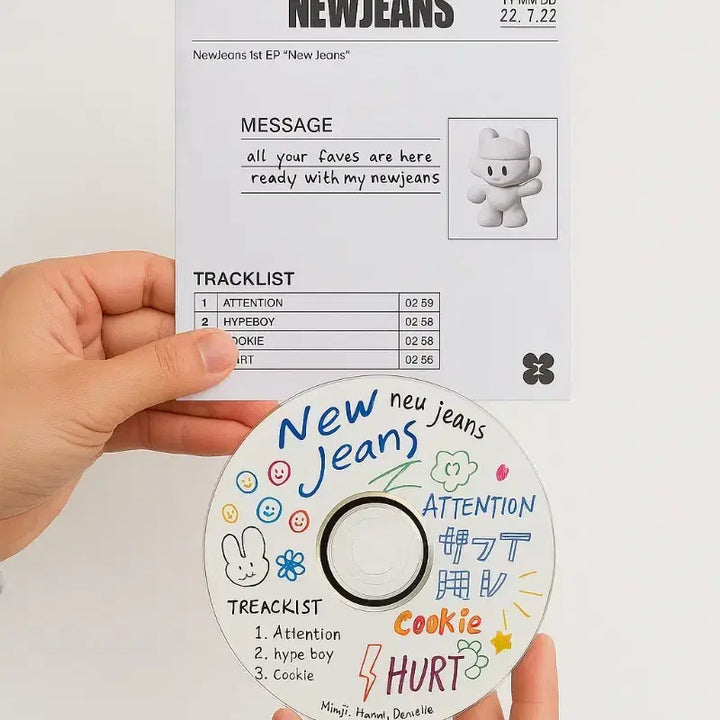 NEWJEANS
YY MM DD
22. 7.22
NewJeans 1st EP “New Jeans”
MESSAGE
all your faves are here
ready with my newjeans
TRACKLIST
1 ATTENTION 02 59
2 HYPEBOY 02 58
OOKIE 02 58
RT 02 56
New Jeans
neu jeans
ATTENTION
Cookie
HURT
TREACKIST
1. Attention
2. hype boy
3. Cookie
Mimji. Hannl, Denielle